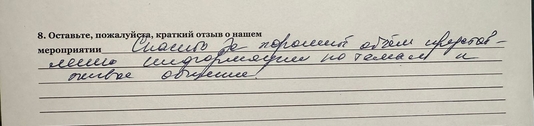 8. Оставьте, пожалуйста, краткий отзыв о нашем
мероприятии Спасибо за хороший объём представ-
ления информации по темам и
живое общение.